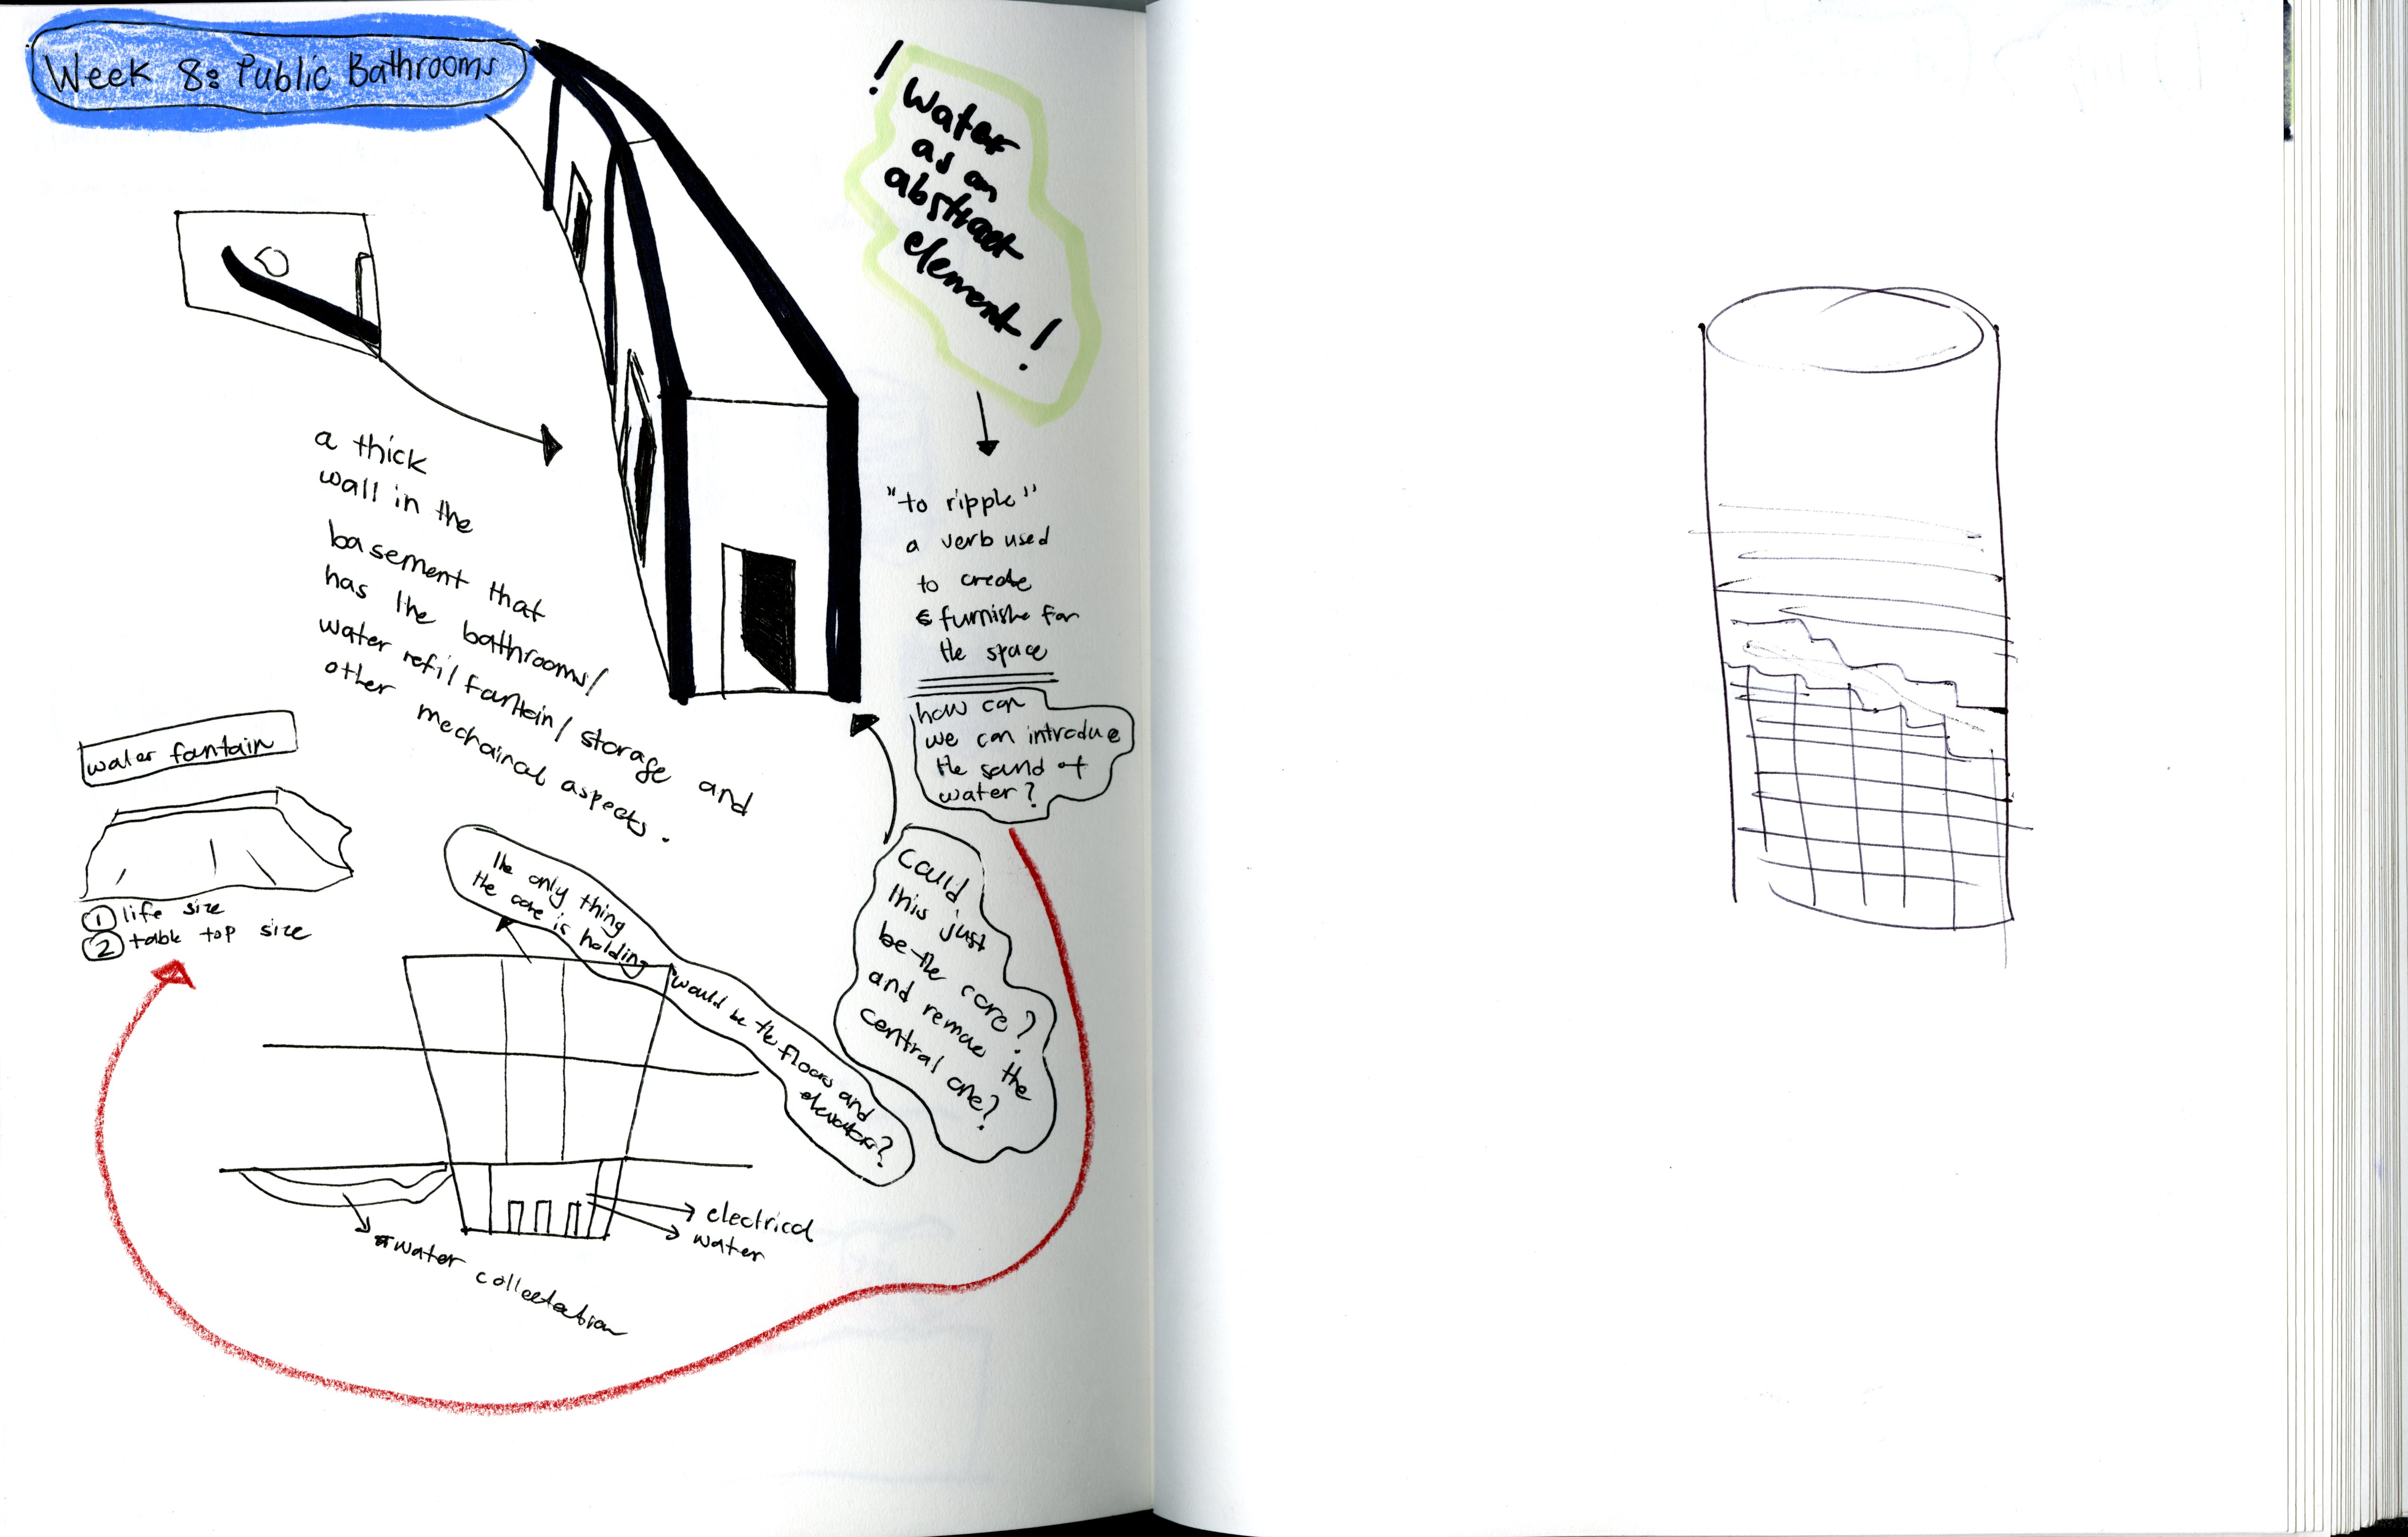 Week 8: Public Bathrooms
! Water
as an
abstract
element!
"to ripple"
a verb used
to create
& furnishe for
the space
how can
we can introduce
the sound of
water?
a thick
wall in the
basement that
has the bathrooms/
water refil fantain/ storage and
other mechaincal aspects.
water fantain
① life size
② table top size
the only thing
the core is holding
would be the floors and
elevators?
Could
this just
be the core?
and remove the
central one?
electrical
water
water collectation